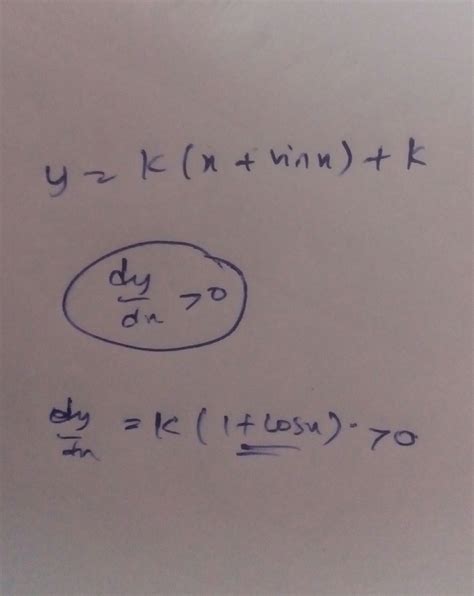 y = k(x + sinx) + k
dy/dx > 0
dy/dx = k(1 + cosx) · > 0